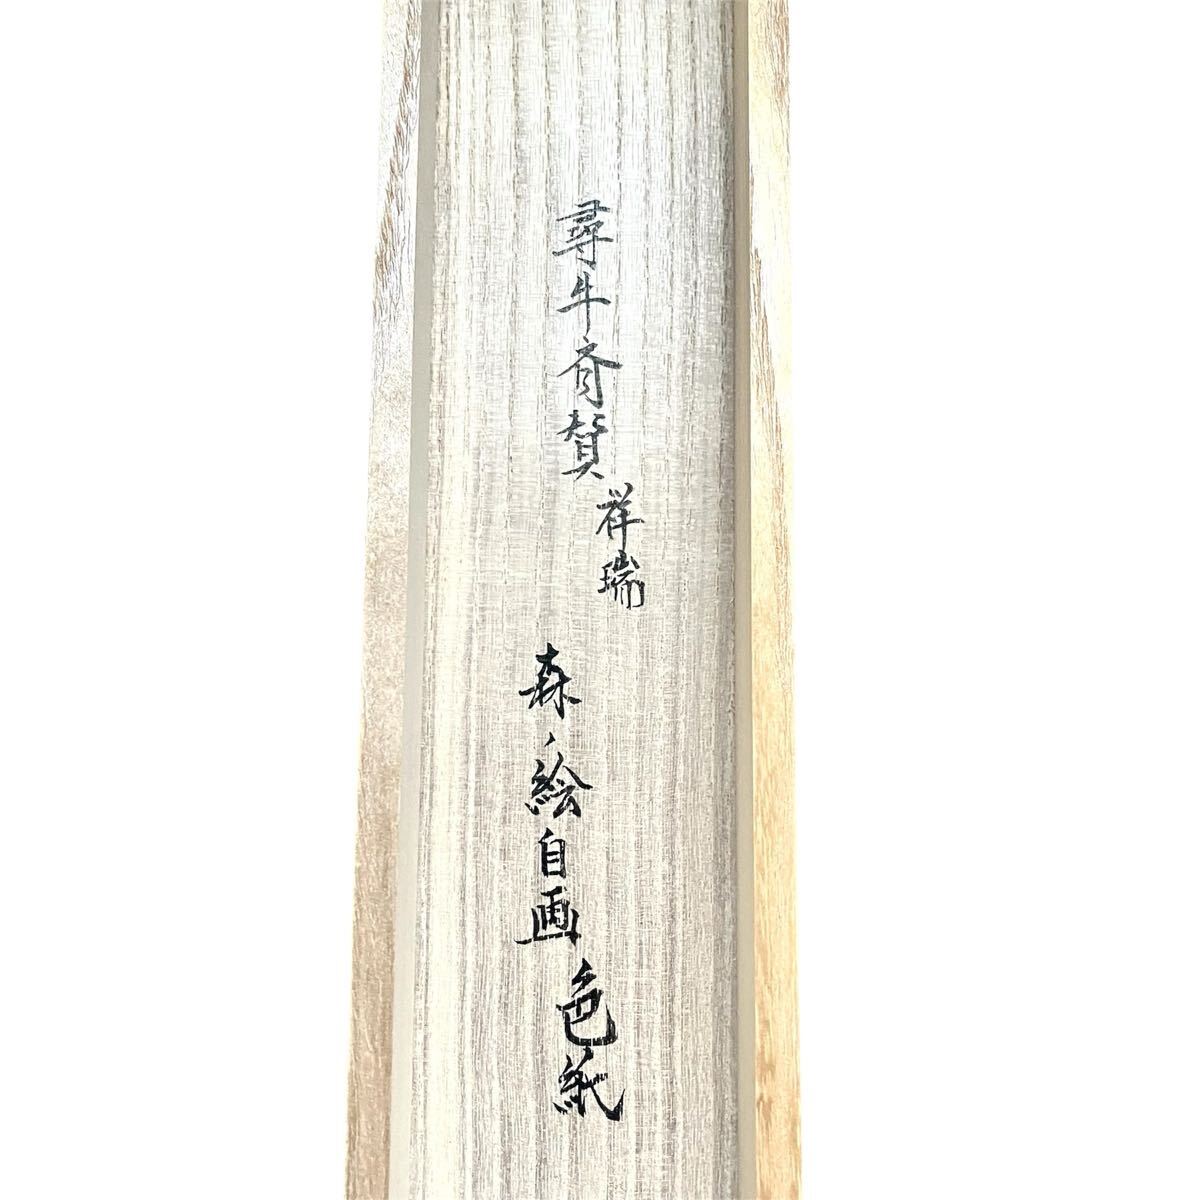 尋牛斎賛
祥瑞
森絵自画
色紙